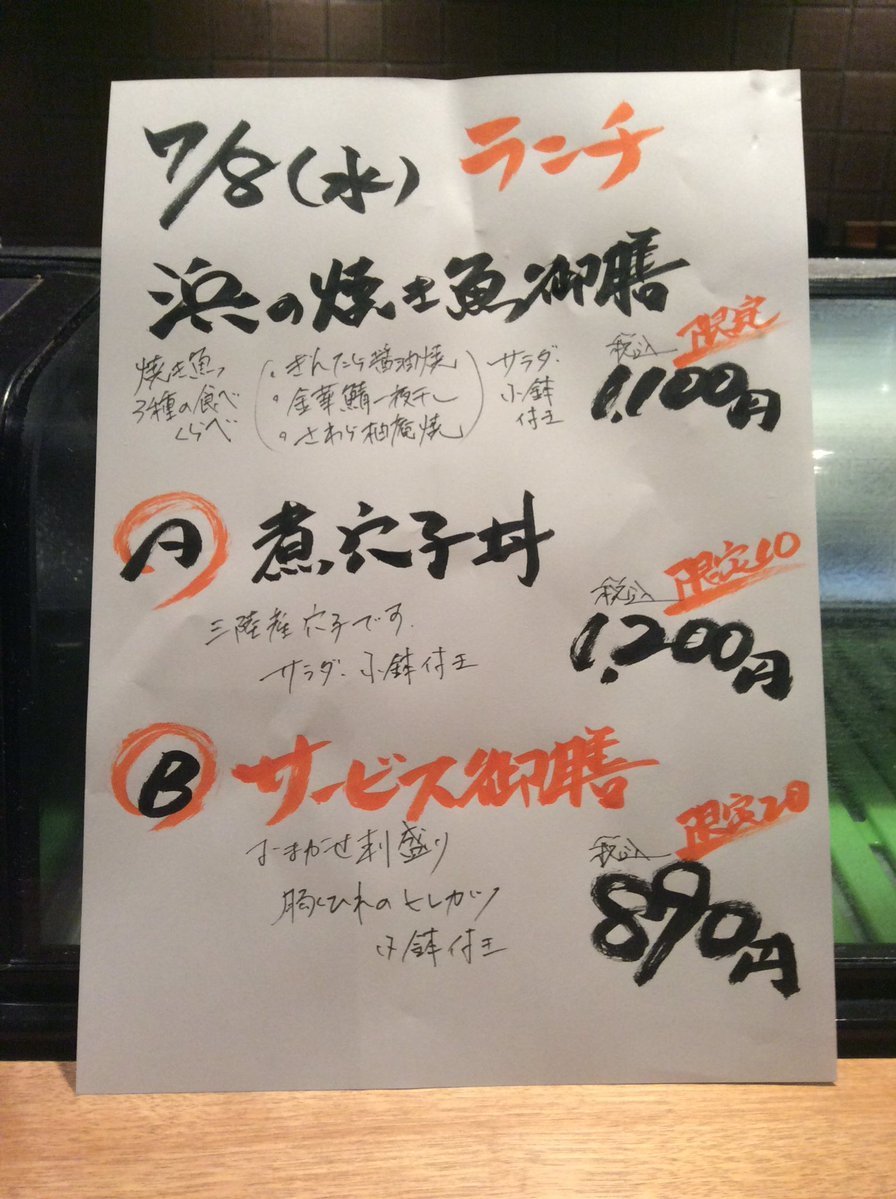 7/8(水) ランチ
浜の焼き魚御膳
限定
税込
1,100円
焼き魚
3種の食べ
くらべ
(・ぎんだら醤油焼
・金華鯖一枚干し
・さわら柚庵焼)
サラダ・
小鉢
付き
A 煮穴子丼
限定10
税込
1,200円
三陸産穴子です。
サラダ・小鉢付き
B サービス御膳
限定20
税込
890円
おまかせ刺盛り
豚ひれのヒレカツ
小鉢付き